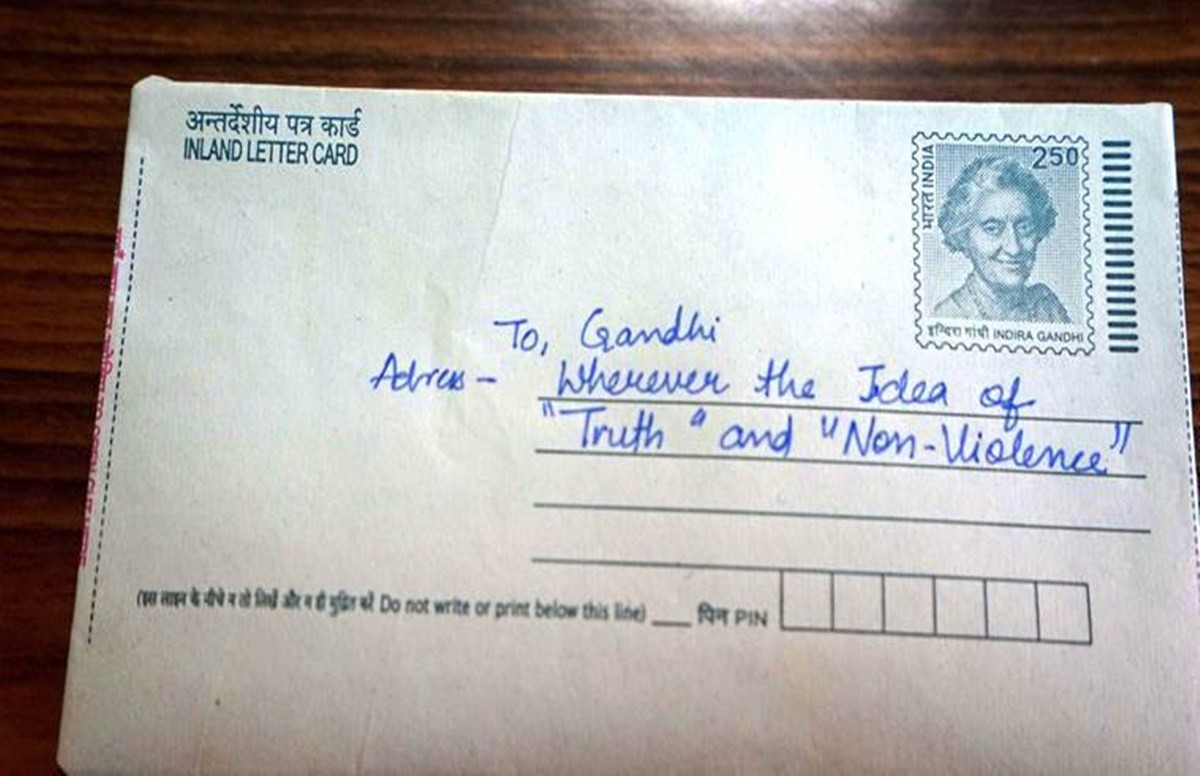 अन्तर्देशीय पत्र कार्ड
INLAND LETTER CARD
250
भारत INDIA
इन्दिरा गांधी INDIRA GANDHI
To, Gandhi
Adress - Wherever the Idea of
"Truth" and "Non-Violence"
(इस लाइन के नीचे न तो लिखें और न ही मुद्रित करें Do not write or print below this line) पिन PIN